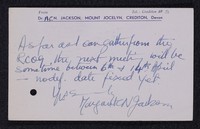 From
Dr. M. N. JACKSON, MOUNT JOCELYN, CREDITON, Devon
As far as I can gather from the
RCOG the next meeting will be
sometime between 6th & 14th April
— no def. date fixed yet
Yrs
Margaret N Jackson